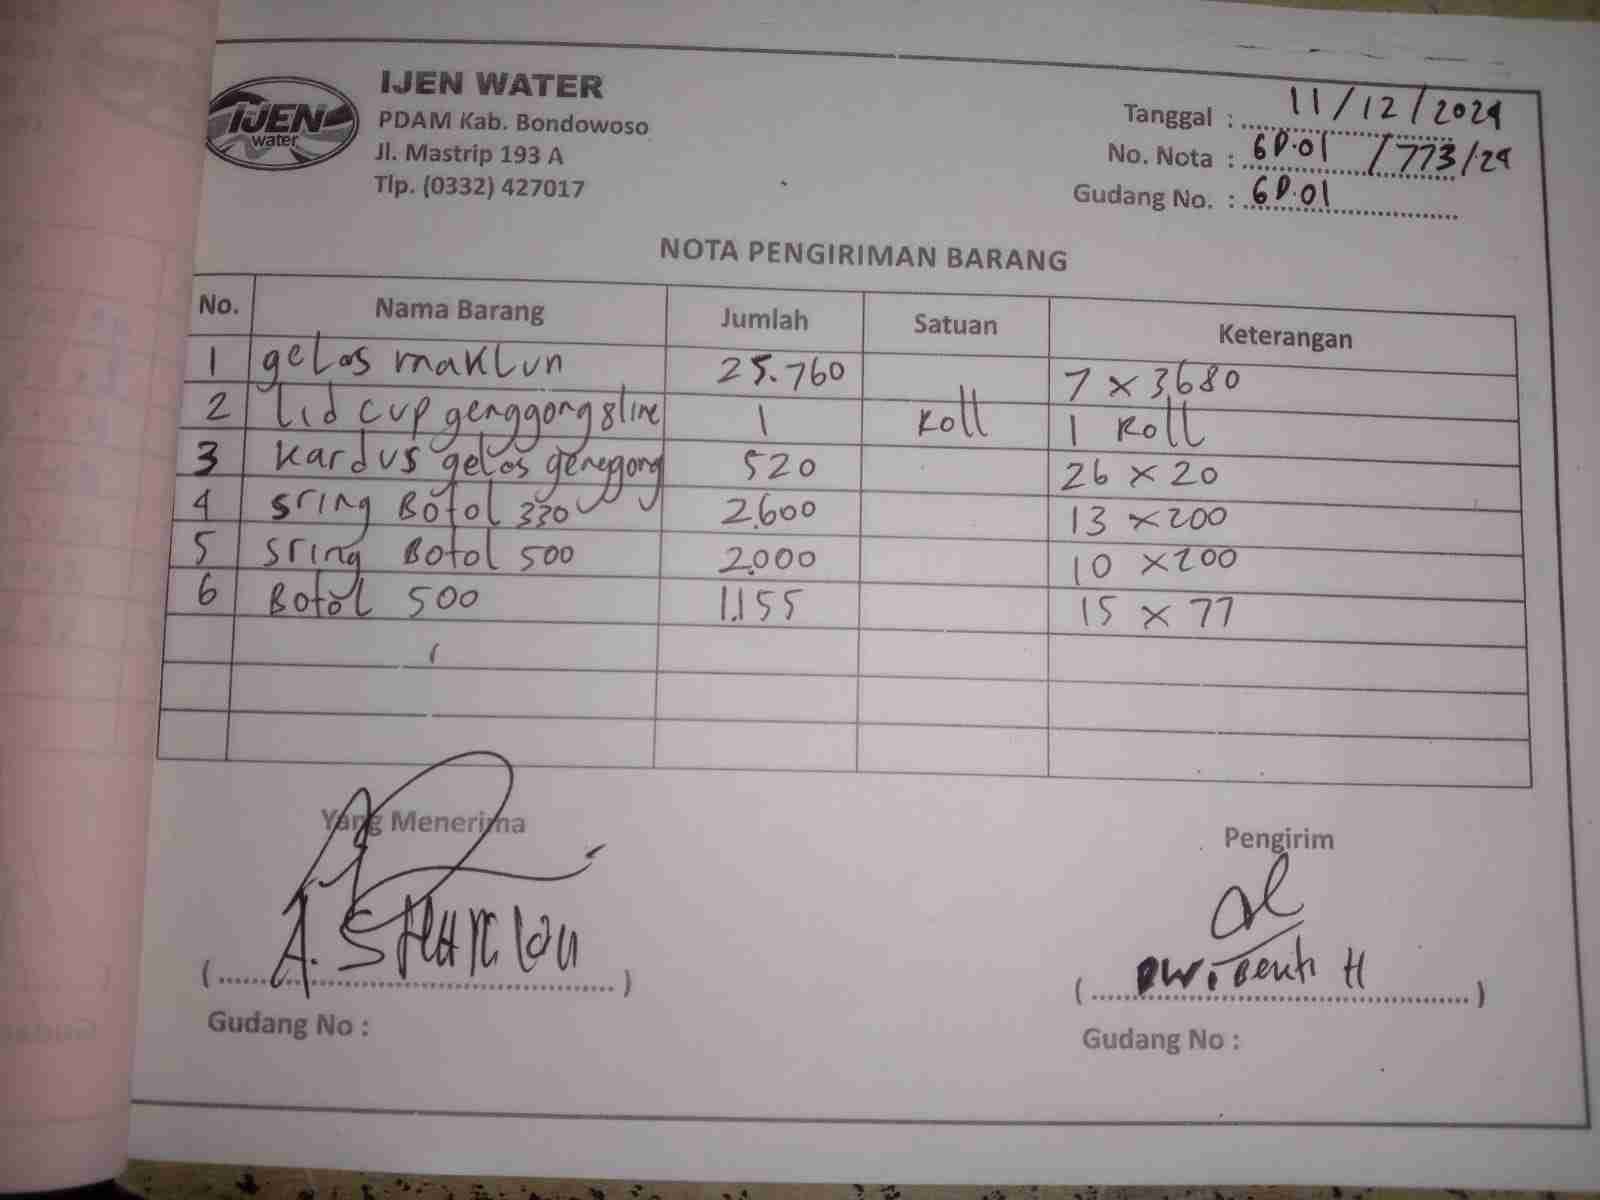 IJEN water
IJEN WATER
PDAM Kab. Bondowoso
Jl. Mastrip 193 A
Tlp. (0332) 427017
Tanggal : 11/12/2024
No. Nota : GD.01 /773/24
Gudang No. : GD.01
NOTA PENGIRIMAN BARANG
No. Nama Barang Jumlah Satuan Keterangan
1 gelas maklun 25.760 7 x 3680
2 Lid cup genggong 8 line 1 Roll 1 Roll
3 Kardus gelas genggong 520 26 x 20
4 Sring Botol 330 2.600 13 x 200
5 Sring Botol 500 2.000 10 x 200
6 Botol 500 1.155 15 x 77
Yang Menerima
Pengirim
(A. )
(Dwi H)
Gudang No :
Gudang No :